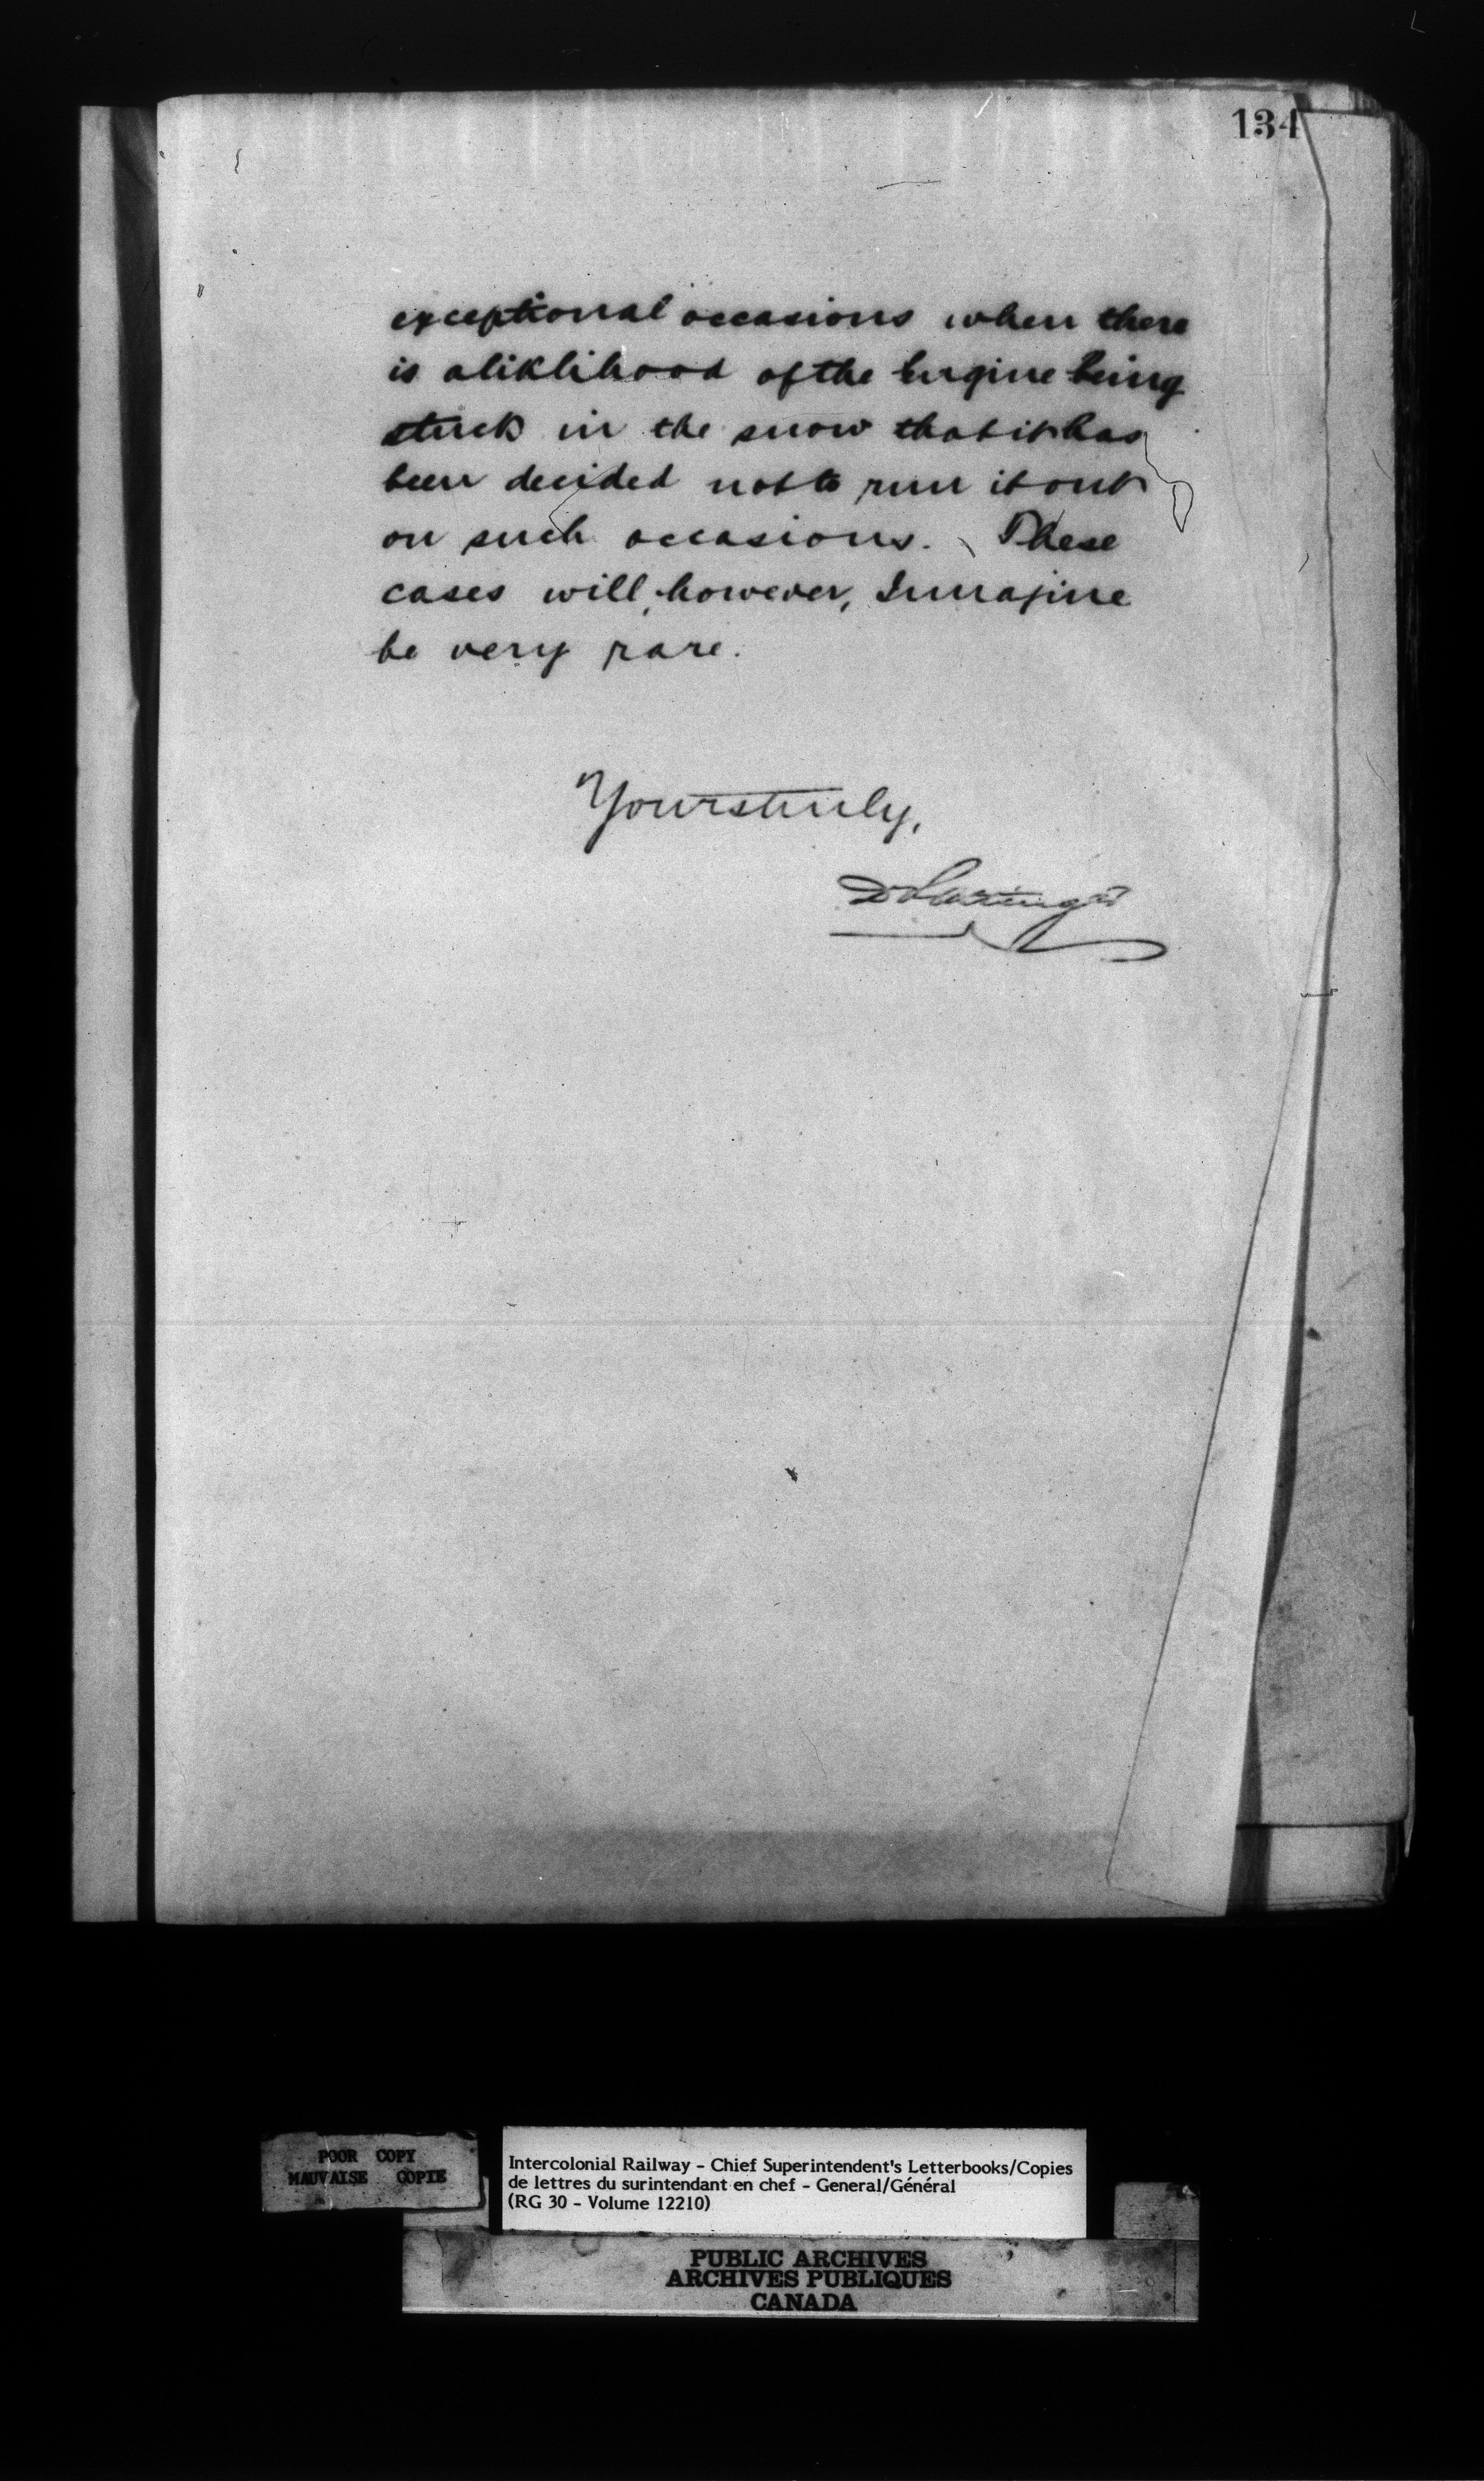 134
exceptional occasions when there
is a liklihood of the Engine being
stuck in the snow that it has
been decided not to run it out
on such occasions. These
cases will, however, I imagine
be very rare.
Yours truly,
POOR COPY
MAUVAISE COPIE
Intercolonial Railway - Chief Superintendent's Letterbooks/Copies
de lettres du surintendant en chef - General/Général
(RG 30 - Volume 12210)
PUBLIC ARCHIVES
ARCHIVES PUBLIQUES
CANADA